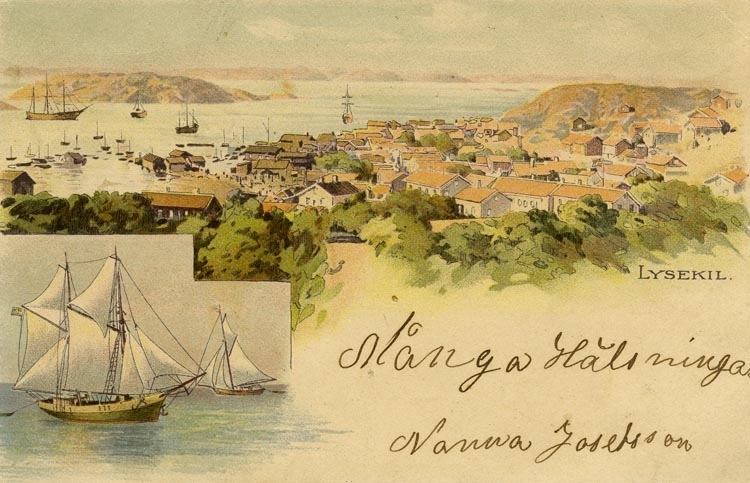 LYSEKIL.
Många Hälsninga
Nanna Josefsson